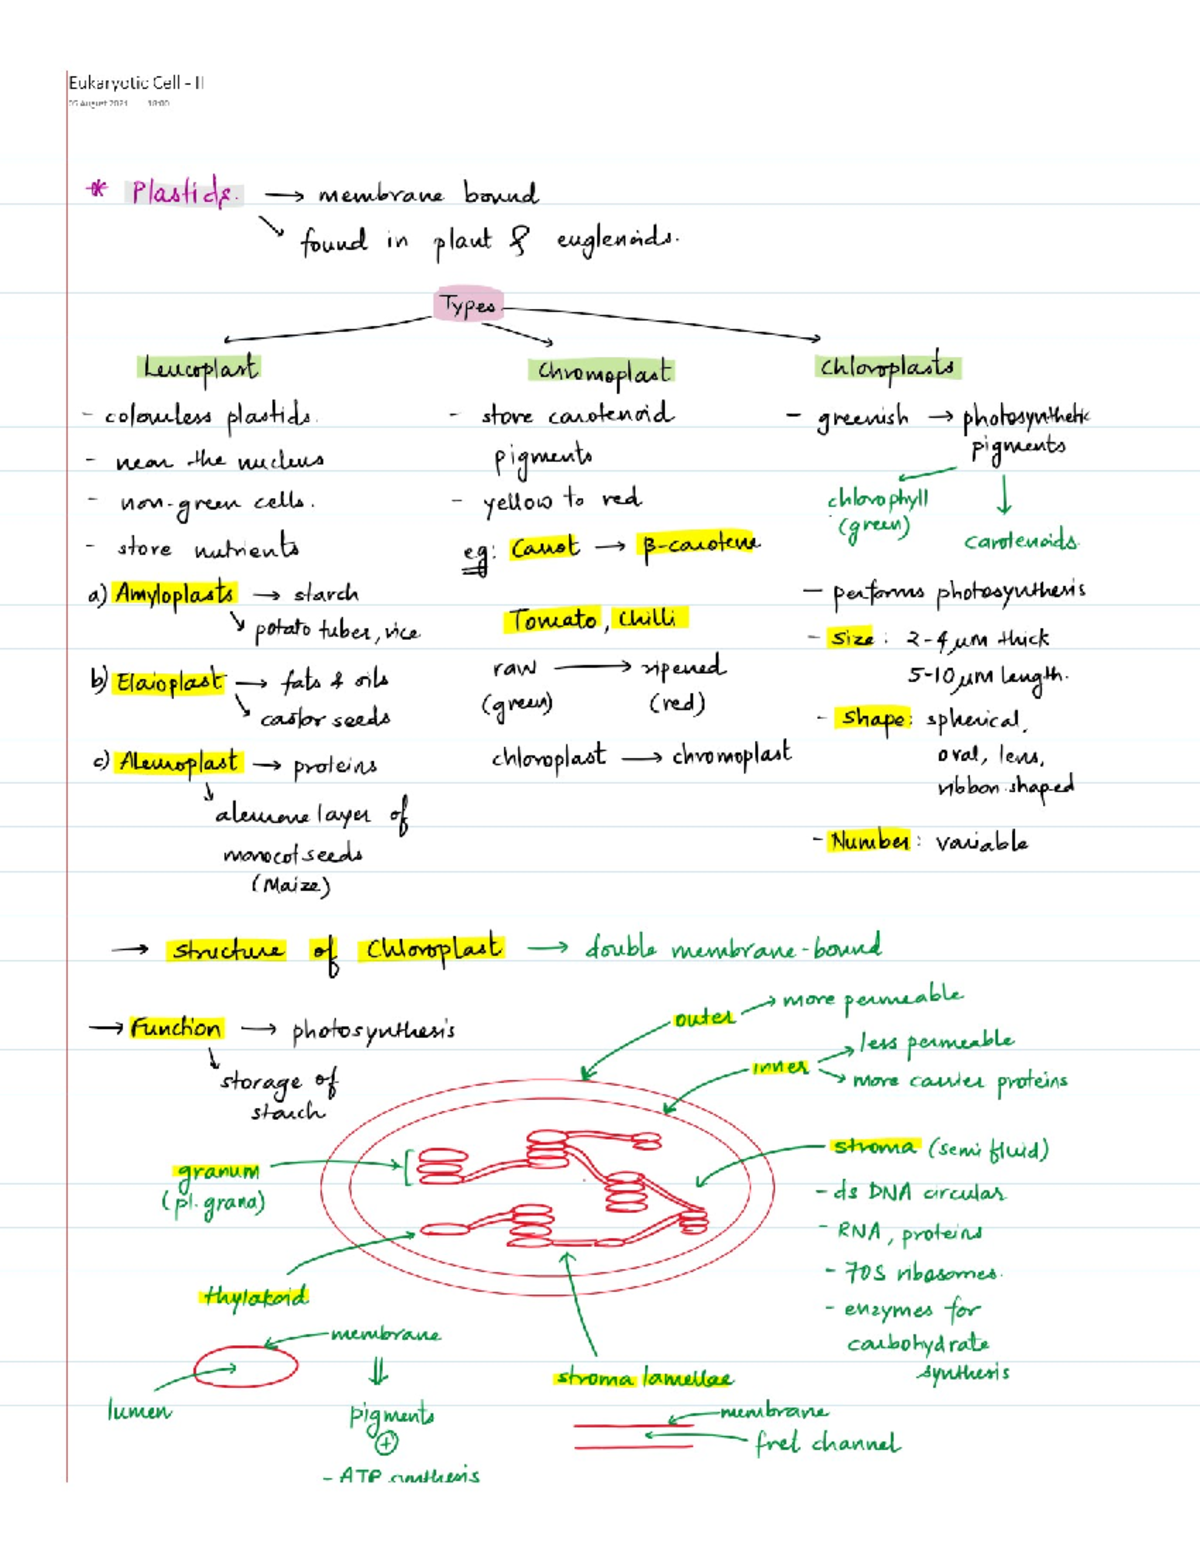 Eukaryotic Cell - II
05 August 2021 18:00
* Plastids. → membrane bound
↘ found in plant & euglenoids.
Types
Leucoplast
- colourless plastids.
- near the nucleus
- non-green cells.
- store nutrients
a) Amyloplasts → starch
↘ potato tuber, rice
b) Elaioplast → fats & oils
↘ castor seeds
c) Aleuroplast → proteins
↓ aleurone layer of
monocot seeds
(Maize)
Chromoplast
- store carotenoid
pigments
- yellow to red
eg: Carrot → β-carotene
Tomato, Chilli
raw → ripened
(green) (red)
chloroplast → chromoplast
Chloroplasts
- greenish → photosynthetic
pigments
chlorophyll
(green)
carotenoids.
- performs photosynthesis
- Size: 2-4 μm thick
5-10 μm length.
- Shape: spherical,
oval, lens,
ribbon shaped
- Number: variable
→ Structure of Chloroplast → double membrane-bound
→ Function → photosynthesis
↘ storage of
starch
outer → more permeable
inner → less permeable
→ more carrier proteins
granum
(pl. grana)
thylakoid
membrane
lumen
pigments
⊕
- ATP synthesis
stroma (semi fluid)
- ds DNA circular
- RNA, proteins
- 70S ribosomes.
- enzymes for
carbohydrate
synthesis
stroma lamellae
membrane
fret channel